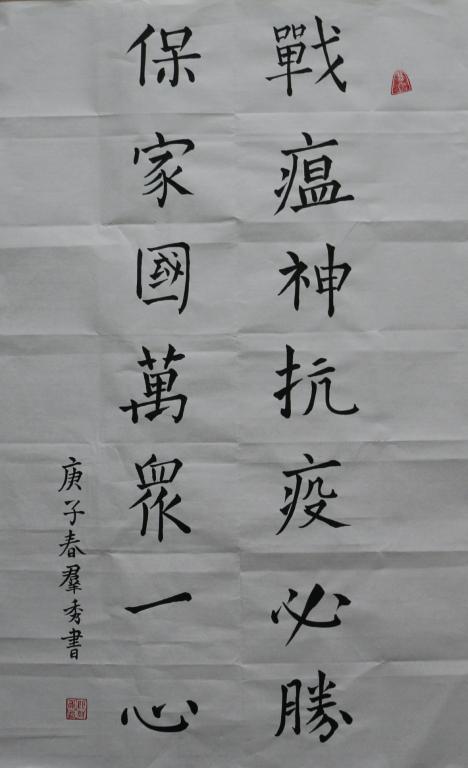 戰瘟神抗疫必勝
保家國萬眾一心
庚子春羣秀書